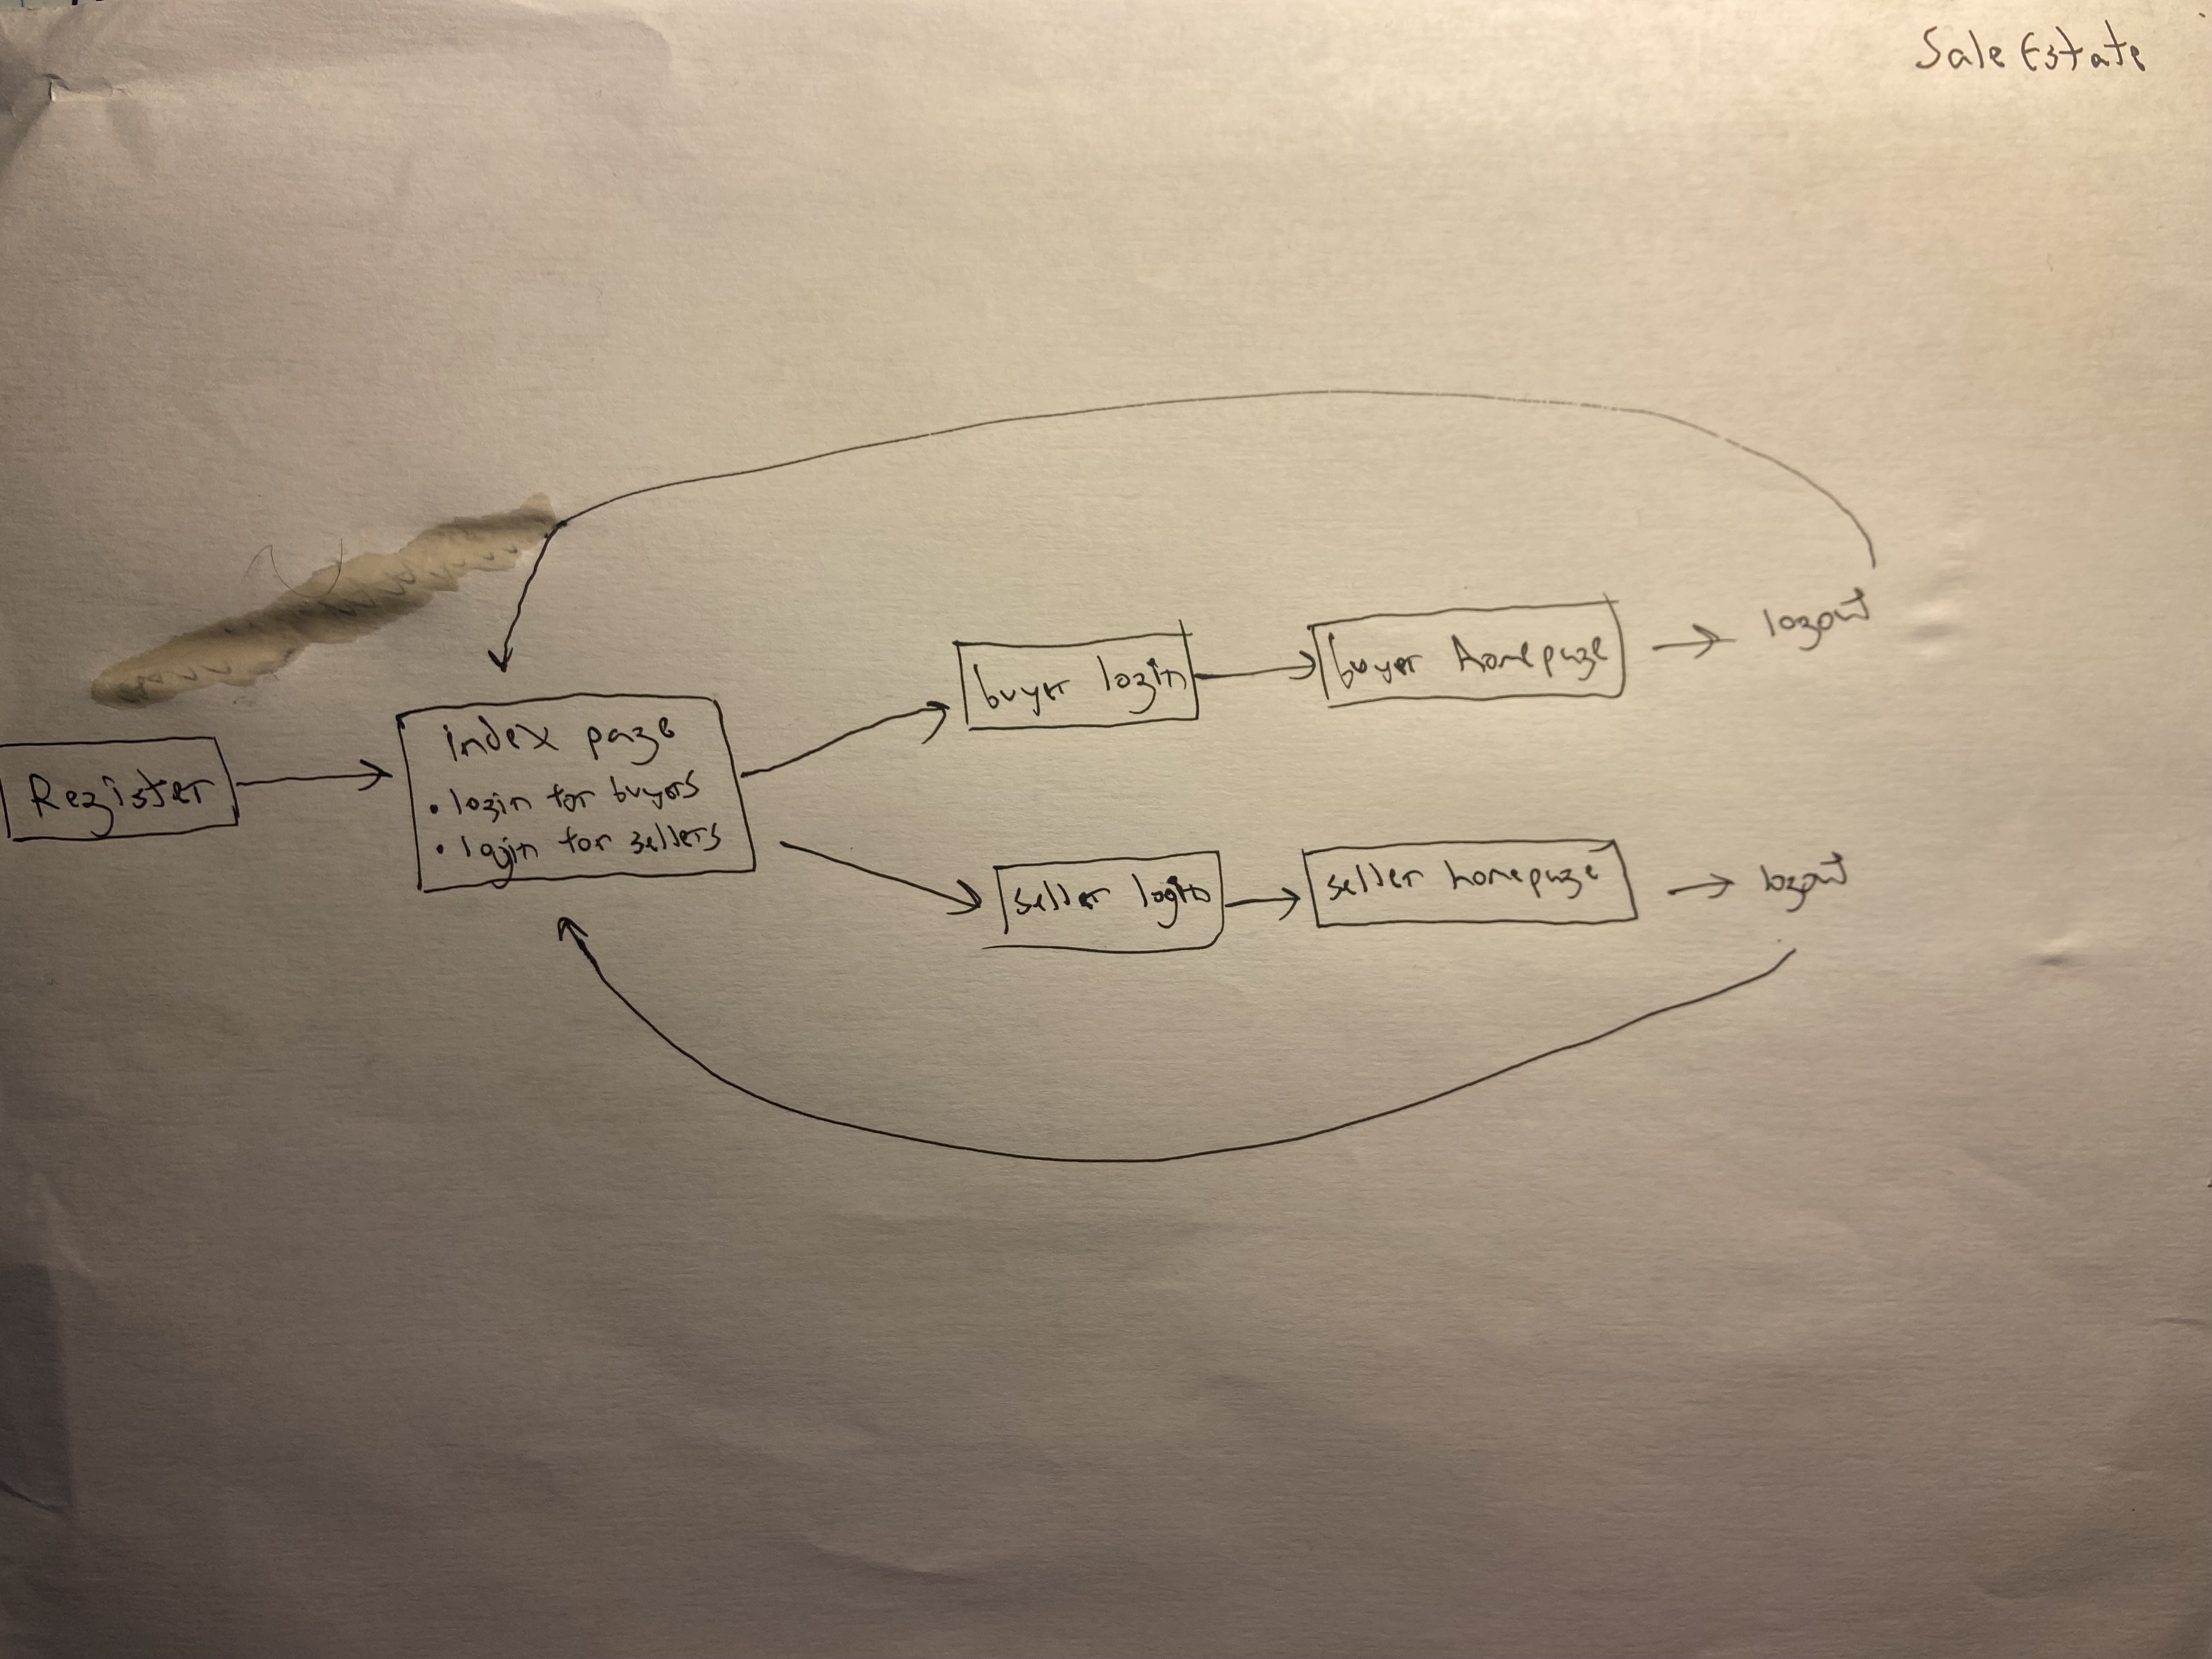 Sale Estate
Register
index page
• login for buyers
• login for sellers
buyer login
buyer homepage
logout
seller login
seller homepage
logout